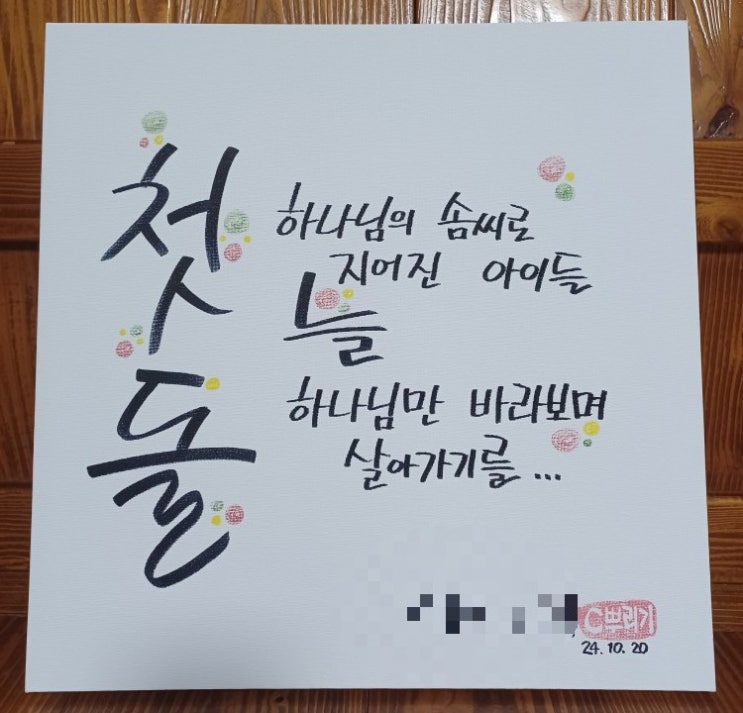 첫돌
하나님의 솜씨로
지어진 아이들
늘
하나님만 바라보며
살아가기를...
C뿌리기
24.10.20